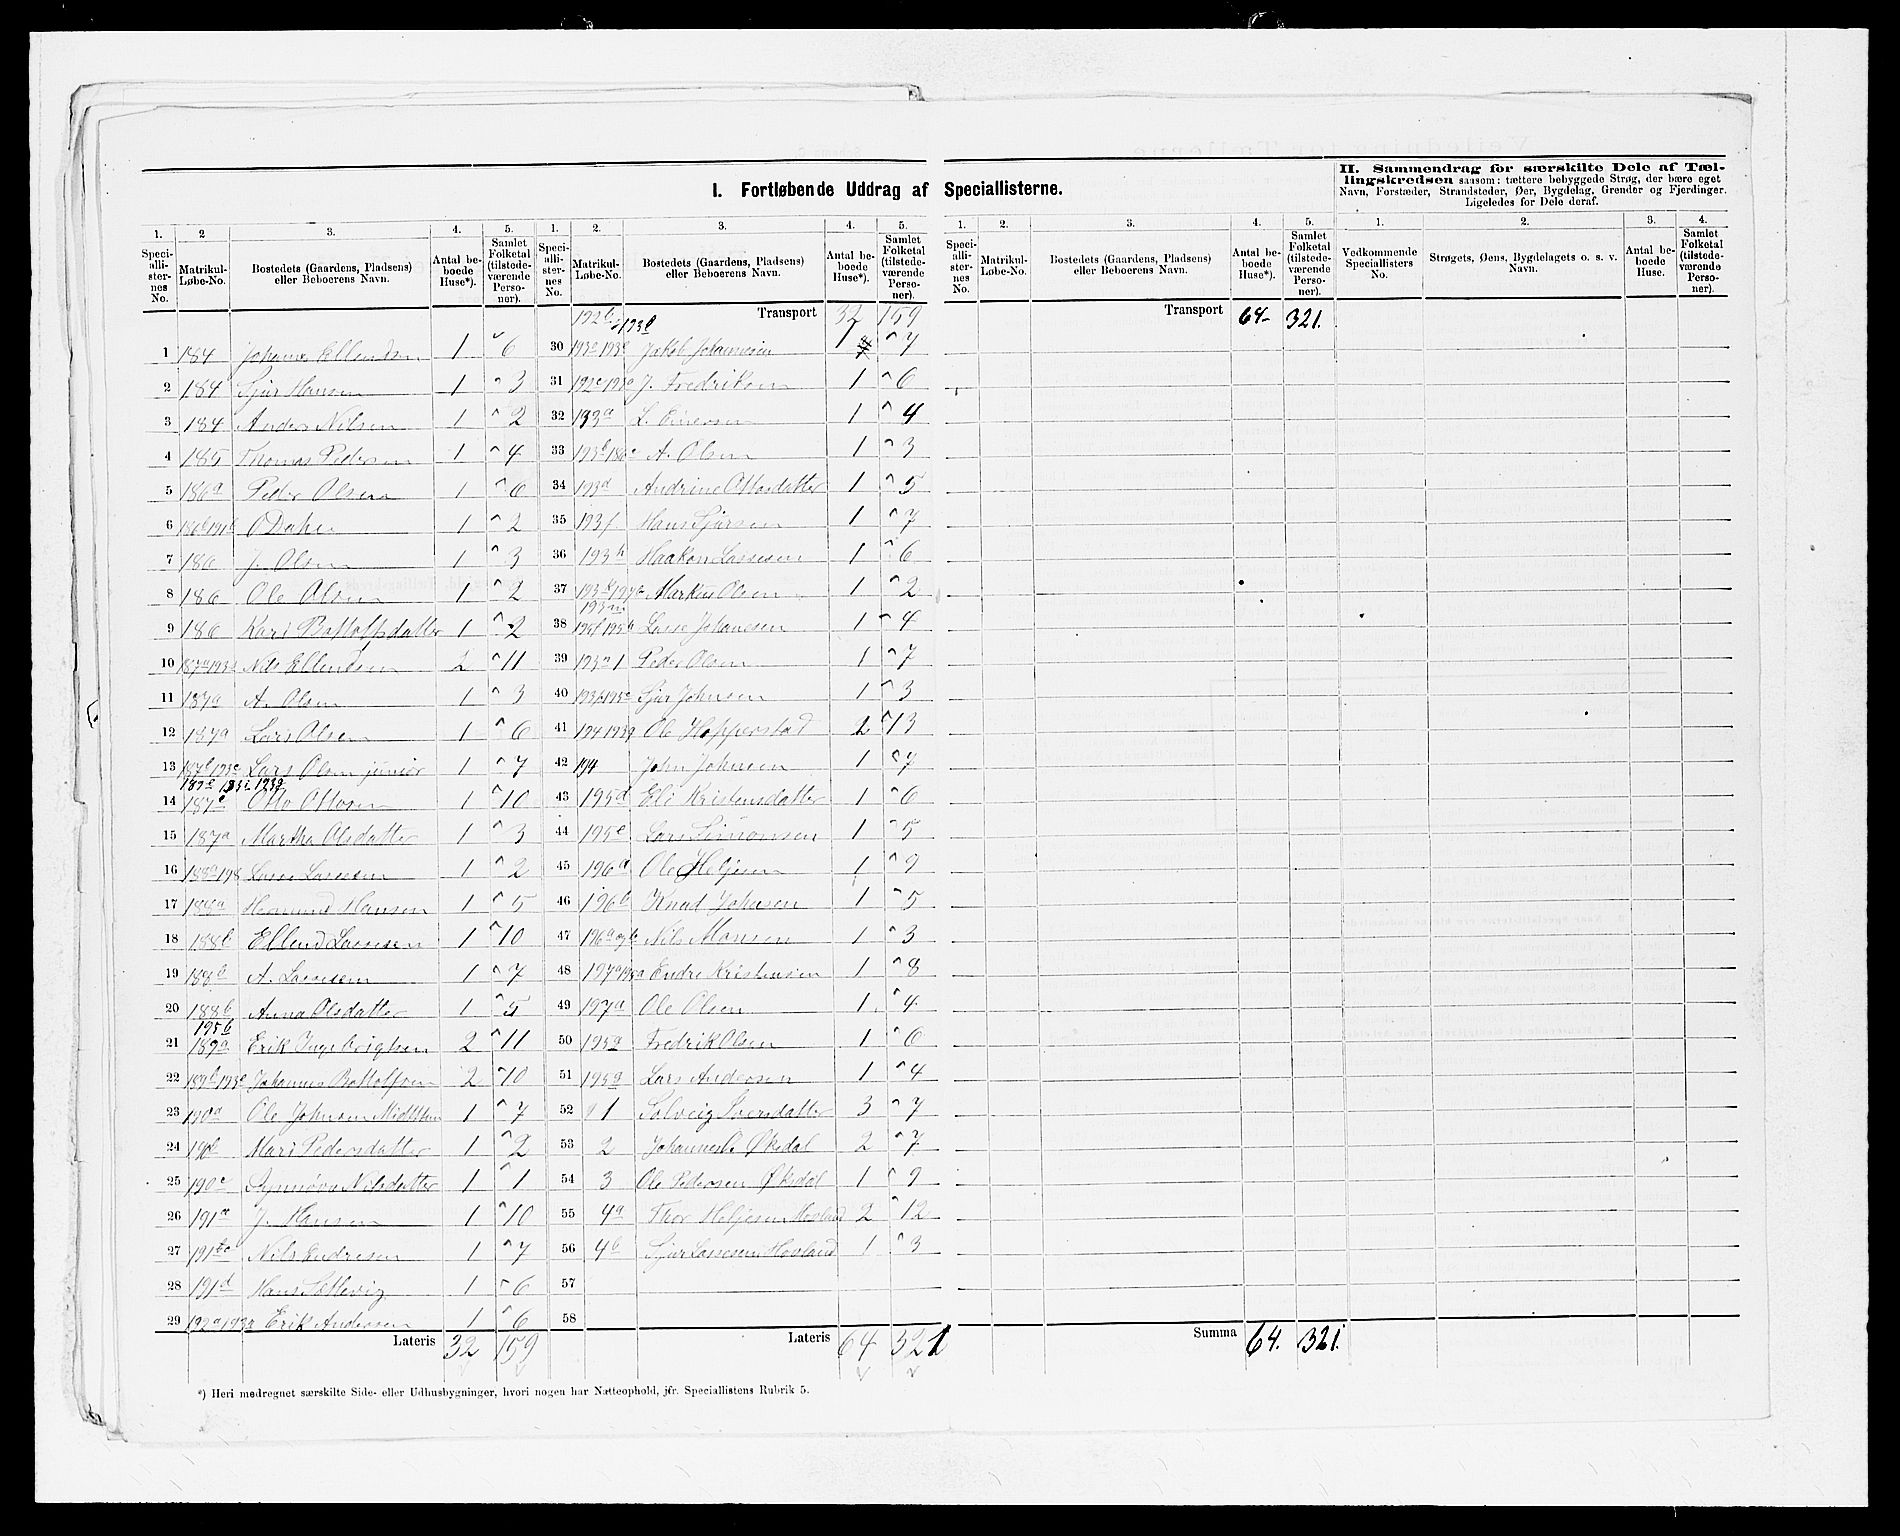 I. Fortløbende Uddrag af Speciallisterne.
II. Sammendrag for særskilte Dele af Tællingskredsen saasom: tættere bebyggede Strøg, der bære eget Navn, Forstæder, Strandsteder, Øer, Bygdelag, Grender og Fjerdinger. Ligeledes for Dele deraf.
1. 2 3. 4. 5. 1. 2. 3. 4. 5. 1. 2. 3. 4. 5. 1. 2. 3. 4.
Speciallisternes No. Matrikul-Løbe-No. Bostedets (Gaardens, Pladsens) eller Beboerens Navn. Antal beboede Huse*). Samlet Folketal (tilstedeværende Personer).
Speciallisternes No. Matrikul-Løbe-No. Bostedets (Gaardens, Pladsens) eller Beboerens Navn. Antal beboede Huse*). Samlet Folketal (tilstedeværende Personer).
Speciallisternes No. Matrikul-Løbe-No. Bostedets (Gaardens, Pladsens) eller Beboerens Navn. Antal beboede Huse*). Samlet Folketal (tilstedeværende Personer).
Vedkommende Speciallisters No. Strøgets, Øens, Bygdelagets o. s. v. Navn. Antal beboede Huse. Samlet Folketal (tilstedeværende Personer).
1 184 Johannes Ellendsen 1 6
2 184 Sjur Hansen 1 3
3 184 Anders Nilsen 1 2
4 185 Thomas Pedersen 1 4
5 186a Peder Olsen 1 6
6 O 1 2
7 186 J. Olsen 1 3
8 186 Ole Olsen 1 2
9 186 Kari Battolfsdatter 1 2
10 Nils Ellendsen 2 11
11 187a A. Olsen 1 3
12 187a Lars Olsen 1 6
13 Lars Olsen junior 1 7
14 Otto Ottosen 1 10
15 187a Martha Olsdatter 1 3
16 Lasse Lassesen 1 2
17 188a Hansen 1 5
18 188b Ellend Lassesen 1 10
19 188b A. Lassesen 1 7
20 188b Anna Olsdatter 1 5
21 195b 189a Erik Ingebrigtsen 2 11
22 Johannes Battolfsen 2 10
23 190a Ole Johnsen 1 7
24 190b Mari Pedersdatter 1 2
25 190c Synnøva Nilsdatter 1 1
26 191a J. Hansen 1 10
27 Nils Endresen 1 7
28 191d Hans Sættevig 1 6
29 Erik Andersen 1 6
Lateris 32 159
Transport 32 159
30 Jakob Johannesen 1 7
31 J. Fredriksen 1 6
32 193a L. 1 4
33 A. Olsen 1 3
34 193d Andrine Ottosdatter 1 5
35 193f Hans Sjursen 1 7
36 193h Haakon Lassesen 1 6
37 Markus Olsen 1 2
38 Lasse Johannesen 1 4
39 Peder Olsen 1 7
40 Sjur Johnsen 1 3
41 Ole Hopperstad 2 13
42 194 John Johnsen 1 7
43 195d Eli Kristensdatter 1 6
44 195e Lars Simonsen 1 5
45 196a Ole Heljesen 1 9
46 196b Knud Johnsen 1 5
47 Nils Monsen 1 3
48 Endre Kristensen 1 8
49 197a Ole Olsen 1 4
50 195a Fredrik Olsen 1 6
51 195a Lars Andersen 1 4
52 1 Solveig Iversdatter 3 7
53 2 Øksdal 2 7
54 3 Ole Pedersen Øksdal 1 9
55 4a Thor Heljesen Hovland 2 12
56 4b Sjur Lassesen Hovland 1 3
57
58
Lateris 64 321
Transport 64 321.
Summa 64. 321.
*) Heri medregnet særskilte Side- eller Udhusbygninger, hvori nogen har Natteophold, jfr. Speciallistens Rubrik 5.